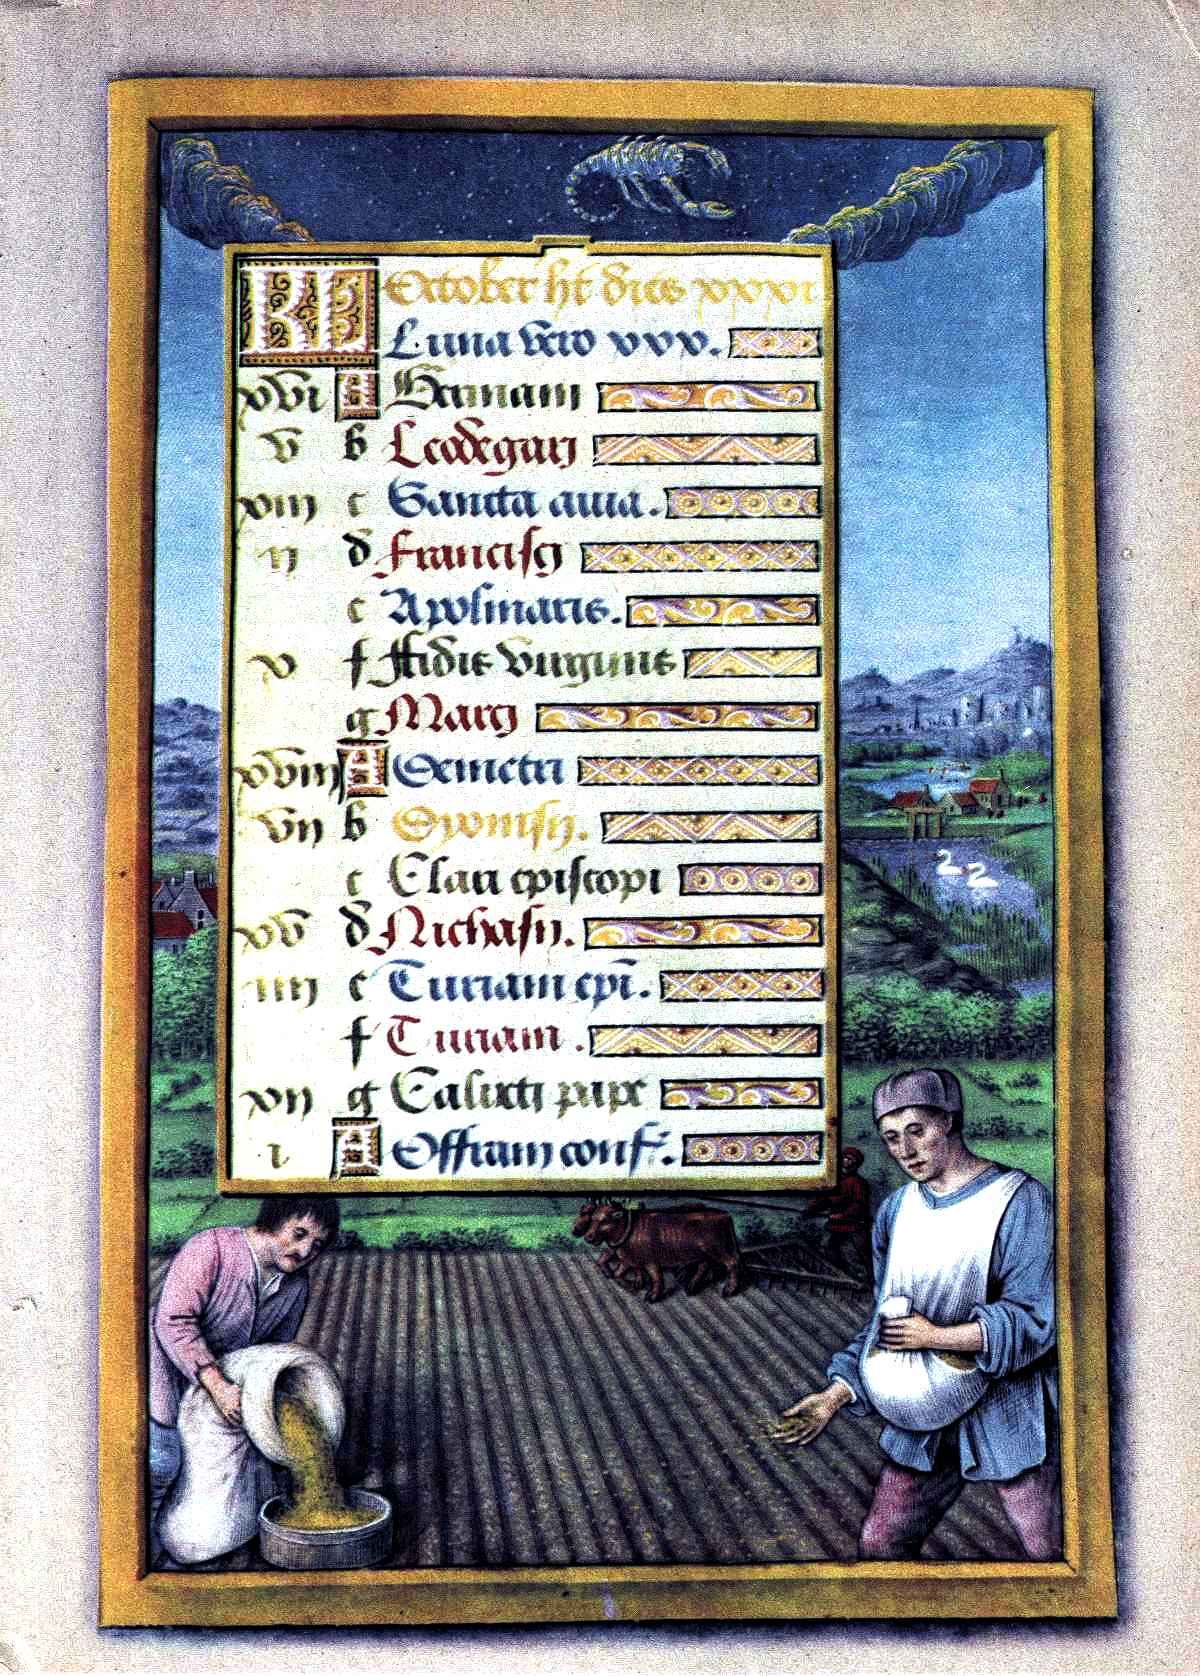 KL October ht dies xxxi
Luna vero xxx.
xvi A Germani
v b Leodegarij
xiii c Sancta avia.
ii d Francisci
e Apolinaris.
x f Ffidis virginis
g Marcij
xviii A Demetri
vii b Dyonisij.
c Clari episcopi
xv d Nichasij.
iiii e epi.
f
xii g Calixti pape
i A conf.